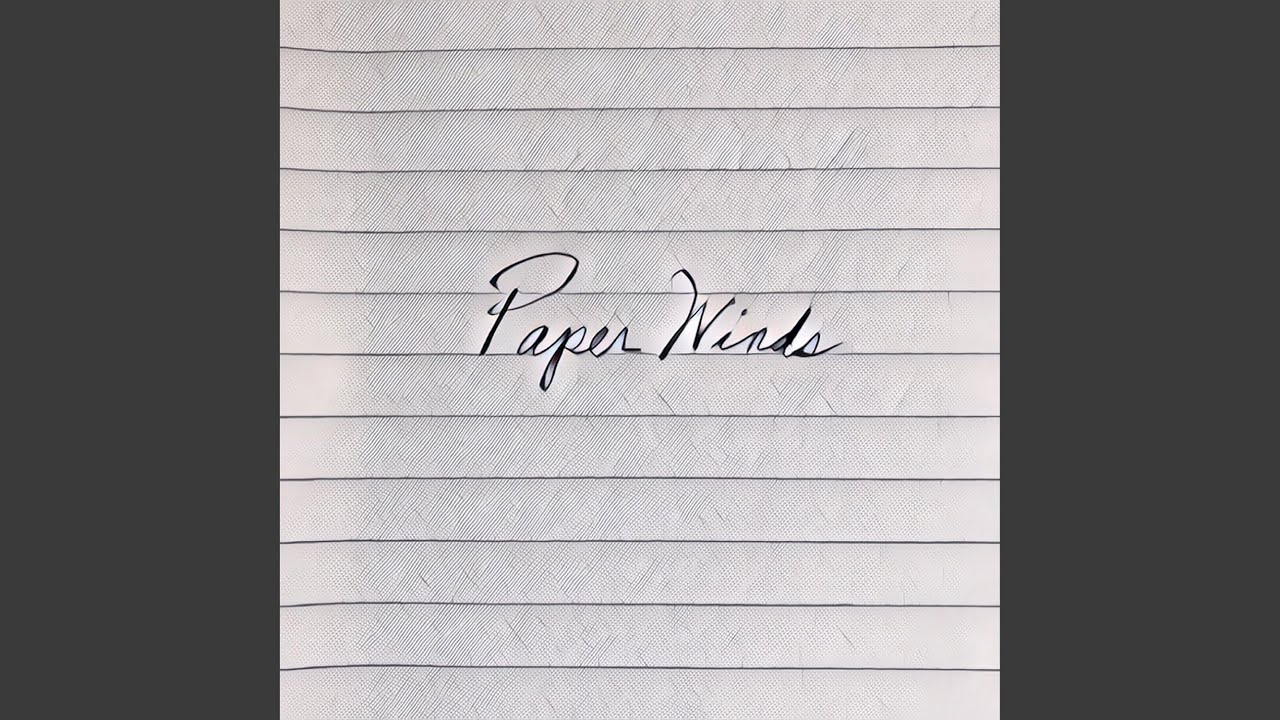 Paper Winds